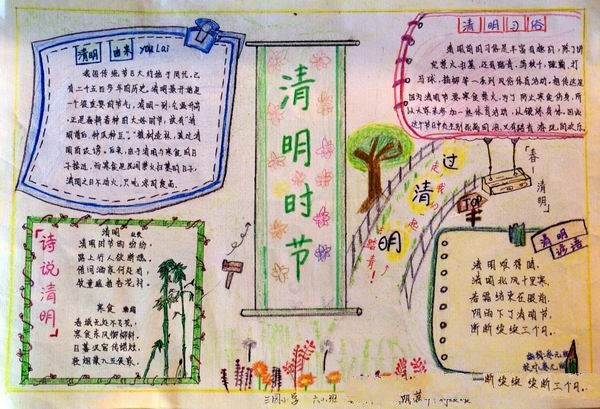 清明 由来 you Lai
我国传统节日大约始于周代,已
有二千五百多年的历史。清明最开始是
一个很重要的节气,清明一到,气温升高
正是春耕春种的大好时节,故有"清
明前后,种瓜种豆"。"植树造林,莫过清
明"的农谚。后来,由于清明与寒食的日
子接近,而寒食是民间禁火扫墓的日子,
清明节
清明习俗
清明节的习俗是丰富有趣的,除了讲
究禁火、扫墓,还有踏青、荡秋千、蹴鞠、打
马球、插柳等一系列风俗体育活动。相传这是
因为清明节要寒食禁火,为了防止寒食伤身,所
以大家来参加一些体育活动,以锻炼身体。
清明时节
诗说清明
清明
清明时节雨纷纷,
路上行人欲断魂。
借问酒家何处有,
牧童遥指杏花村。
寒食
春城无处不飞花,
寒食东风御柳斜。
日暮汉宫传蜡烛,
轻烟散入五侯家。
过
清
明
踏青!
「春—清明」
TOP
清明谚语
清明难得晴,
清明北风十里寒,
春霜结束在眼前。
阴雨下了清明节,
断断续续三个月。
断断续续三个月
三冈小学 六(1)班